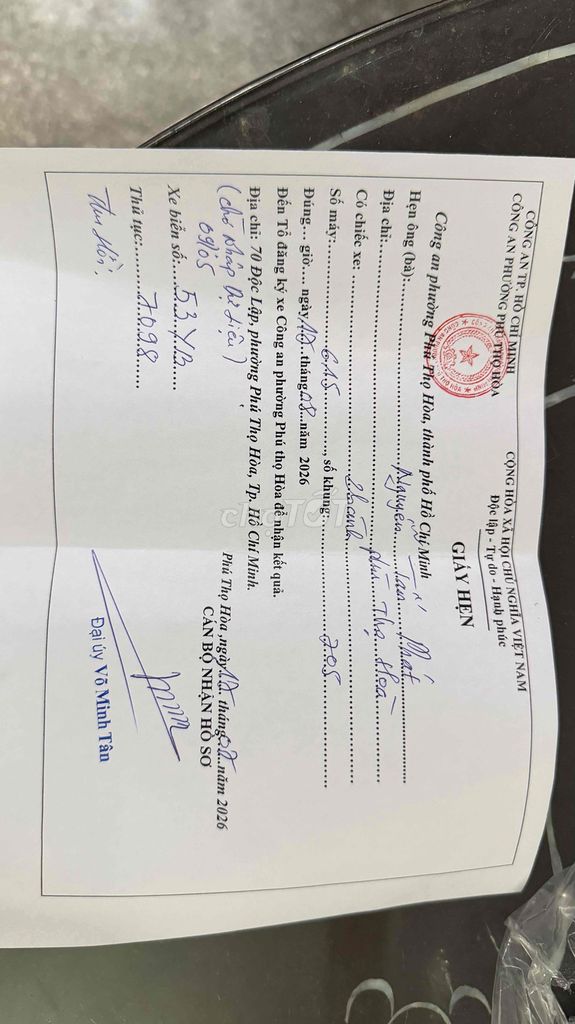 CÔNG AN TP. HỒ CHÍ MINH
CÔNG AN PHƯỜNG PHÚ THỌ HÒA
CỘNG HÒA XÃ HỘI CHỦ NGHĨA VIỆT NAM
Độc lập - Tự do - Hạnh phúc
GIẤY HẸN
Công an phường Phú Thọ Hòa, thành phố Hồ Chí Minh
Hẹn ông (bà):........Nguyễn Tấn Phát
Địa chỉ:........phú Thọ Hoà
Có chiếc xe:........
Số máy:........615........, số khung:........705........
Đúng... giờ.... ngày........tháng.08..năm 2026
Đến Tổ đăng ký xe Công an phường Phú thọ Hòa để nhận kết quả.
Địa chỉ: 70 Độc Lập, phường Phú Thọ Hòa, Tp. Hồ Chí Minh.
(chờ Nhập Dữ Liệu)
09/05
Xe biển số....53YB......
Thủ tục:........7098......
Thu Hồi,
Phú Thọ Hòa ,ngày........tháng........năm 2026
CÁN BỘ NHẬN HỒ SƠ
Đại úy Võ Minh Tân
chợTỐT